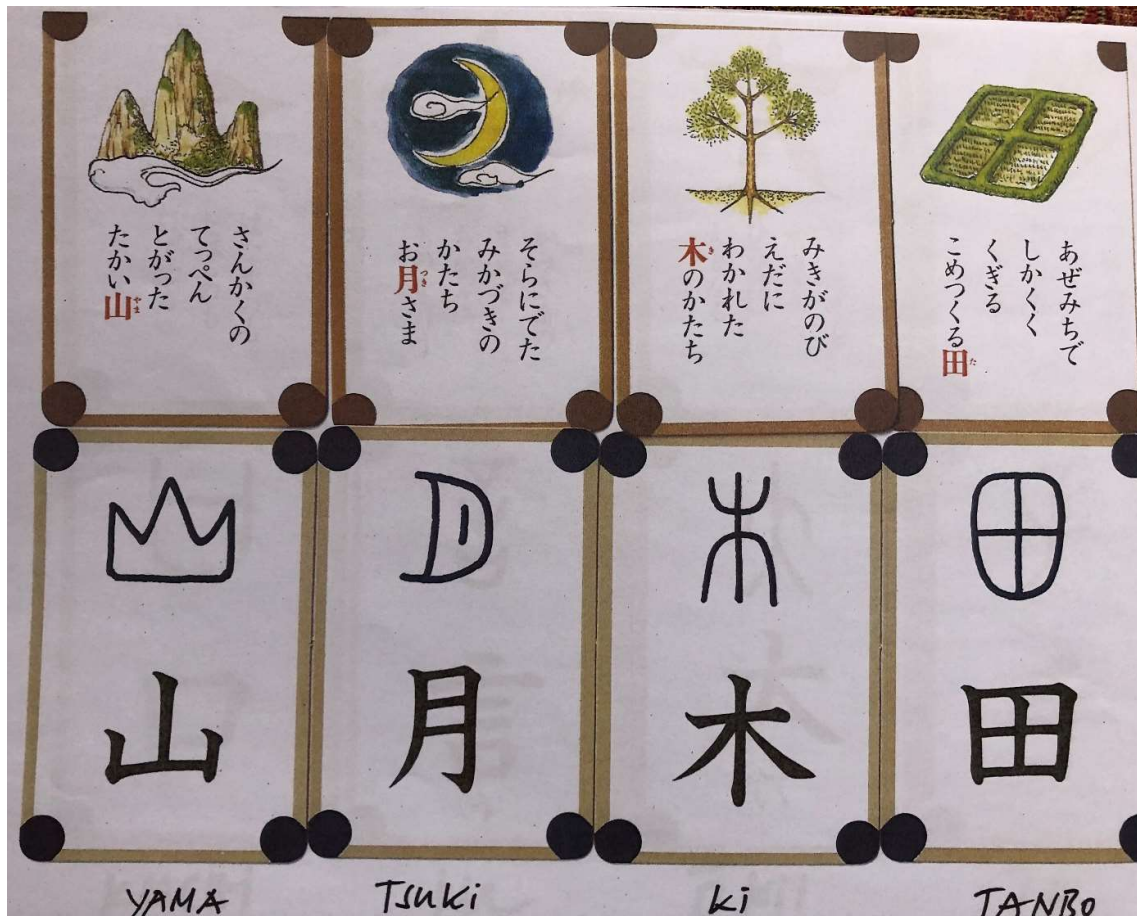 さんかくの
てっぺん
とがった
たかい山
やま
そらにでた
みかづきの
かたち
お月さま
つき
みきがのび
えだに
わかれた
木のかたち
き
あぜみちで
しかくく
くぎる
こめつくる田
た
山
月
木
田
YAMA
TSUKi
ki
TANBO